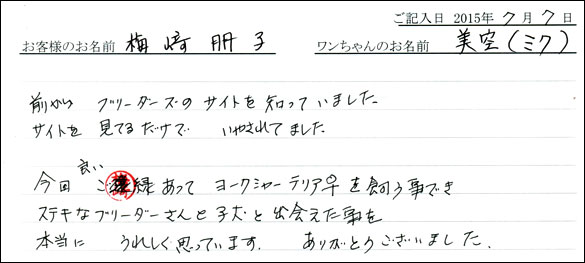 ご記入日 2015年 7月 7日
お客様のお名前 梅﨑 朋子 ワンちゃんのお名前 美空(ミク)
前から ブリーダーズのサイトを知っていました
サイトを 見てるだけで いやされてました
良い
今回 ご縁あって ヨークシャーテリア♀を飼う事でき
ステキなブリーダーさんと子犬と出会えた事を
本当に うれしく思っています. ありがとうございました.